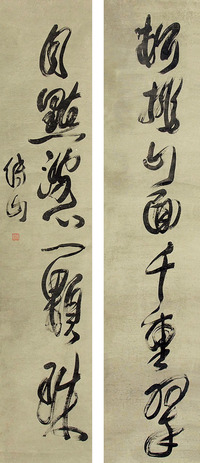 松排山面千重翠
月點波心一顆珠
傅山